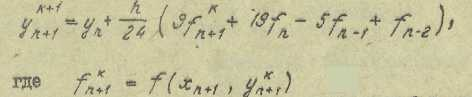 y_{n+1}^{k+1} = y_n + \frac{h}{24} ( 9f_{n+1}^{k} + 19f_n - 5f_{n-1} + f_{n-2} ),
где f_{n+1}^{k} = f(x_{n+1}, y_{n+1}^{k})